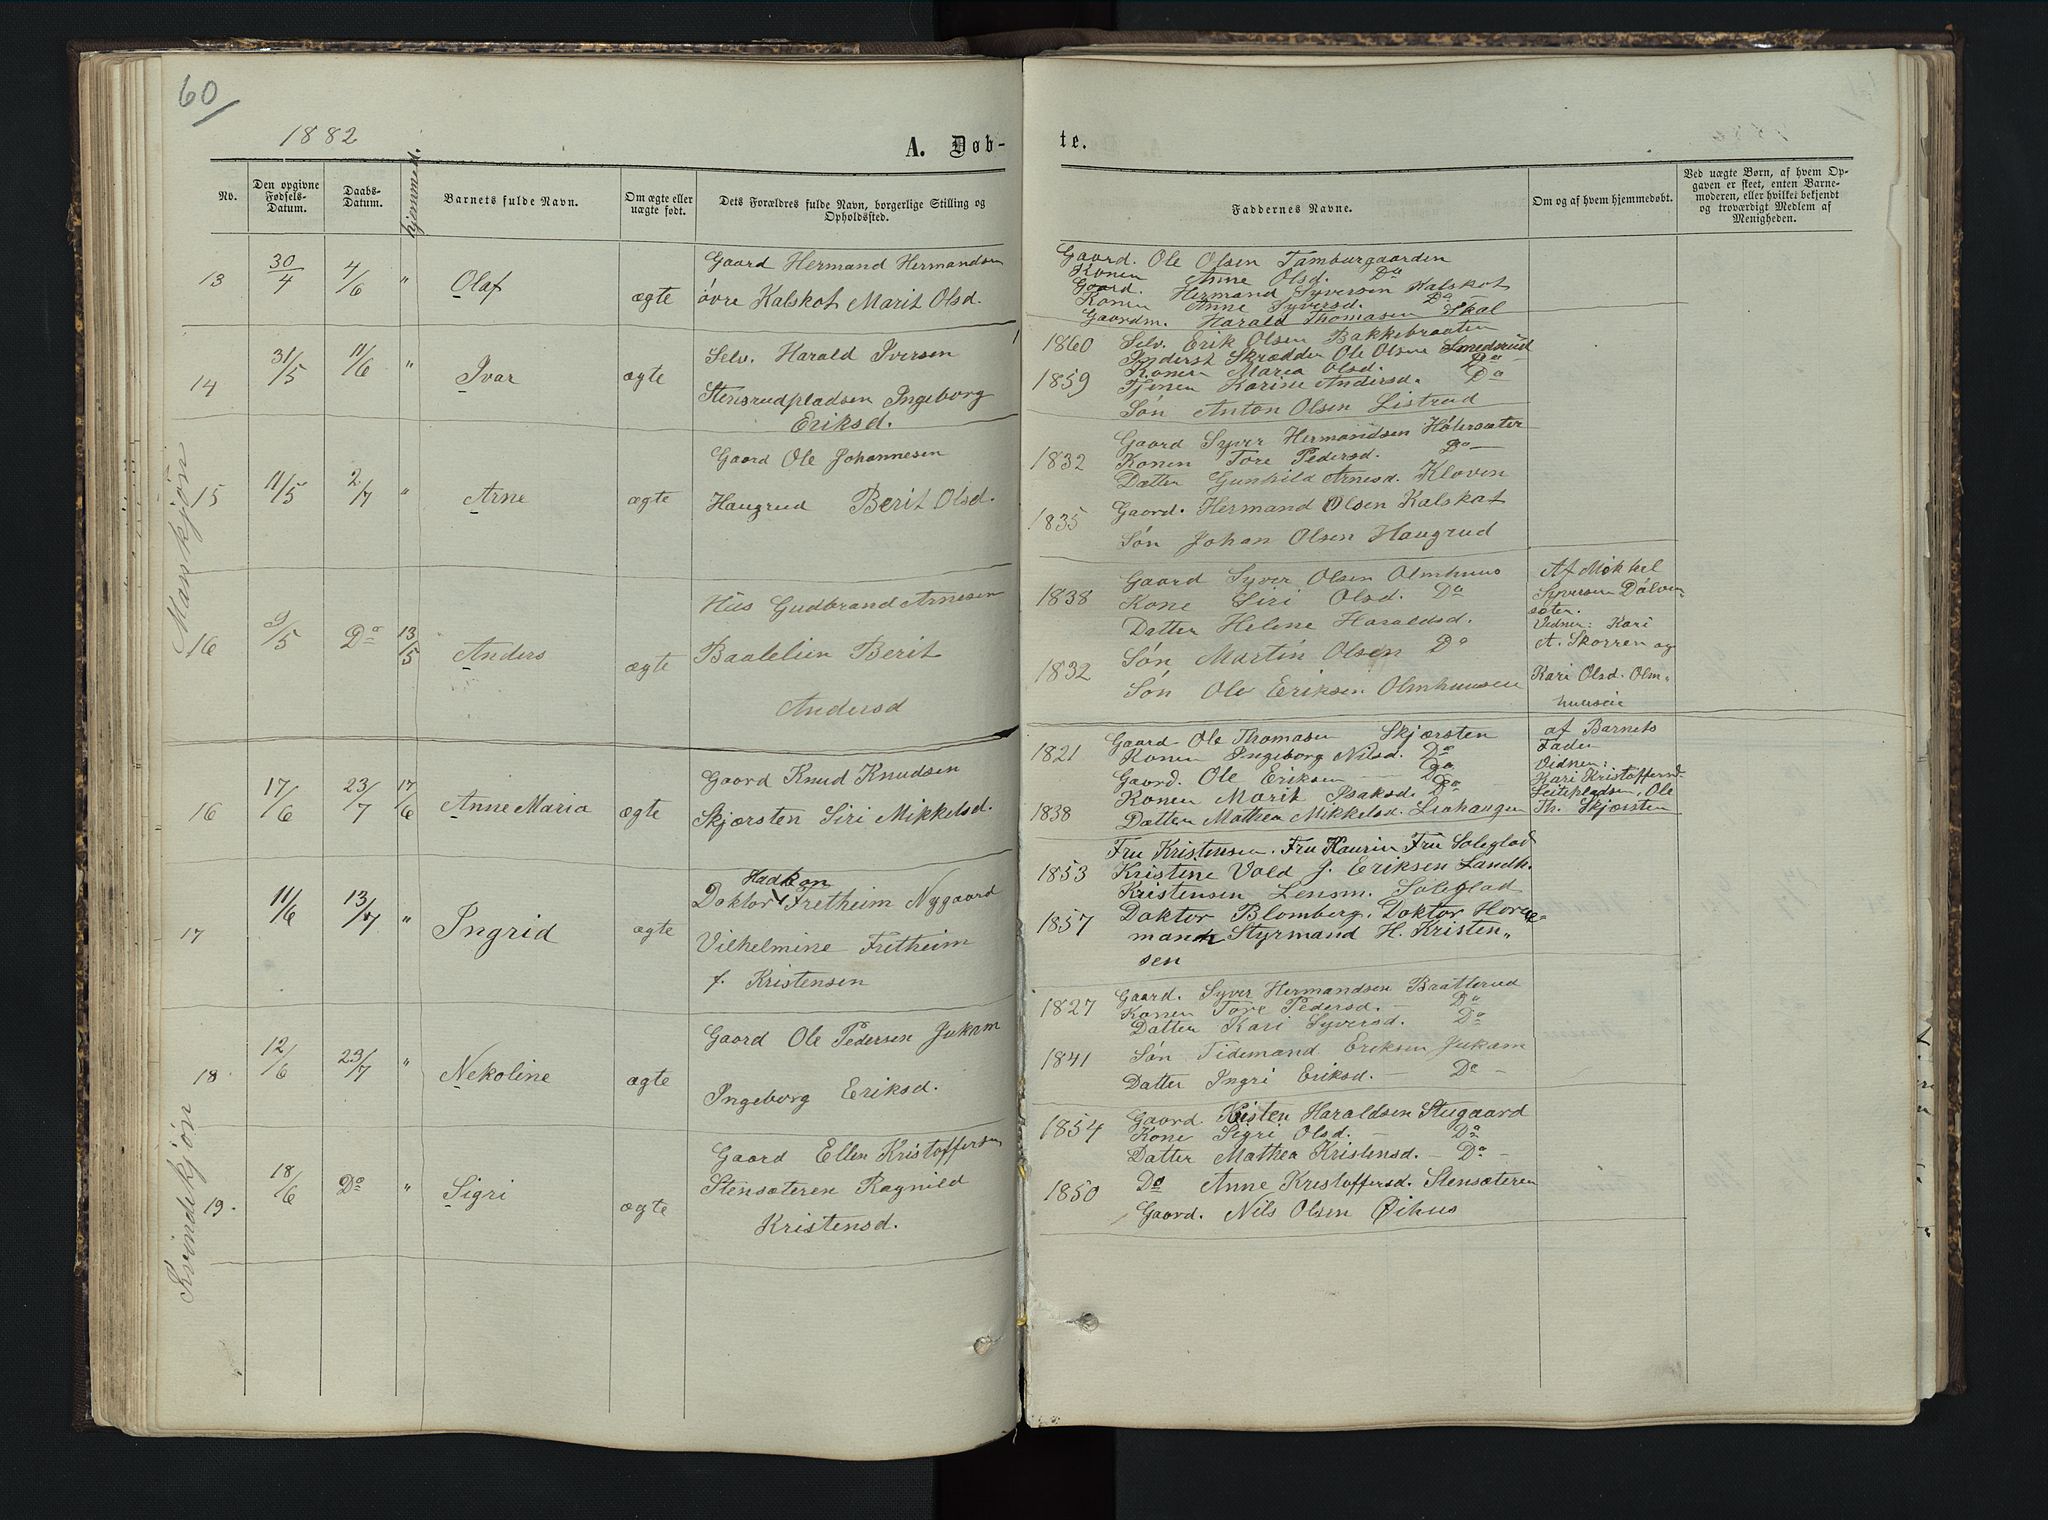 60
1882
A. Døb-
No.
Den opgivne Fødsels-Datum.
Daabs-Datum.
hjemmed.
Barnets fulde Navn.
Om ægte eller uægte født.
Dets Forældres fulde Navn, borgerlige Stilling og Opholdssted.
Manskjøn
13
30/4
4/6
"
Olaf
ægte
Gaard Hermand Hermandsen
øvre Kalskot Marit Olsd.
14
31/5
11/6
"
Ivar
ægte
Selv. Harald Iversen
Stensrudpladsen Ingeborg
Eriksd.
15
11/5
2/7
"
Arne
ægte
Gaard Ole Johannesen
Haugrud Berit Olsd.
16
9/5
Do
13/5
Anders
ægte
Hus Gudbrand Arnesen
Baalelien Berit
Andersd
Kvindekjøn
16
17/6
23/7
17/6
Anne Maria
ægte
Gaard Knud Knudsen
Skjørsten Siri Mikkelsd.
17
11/6
13/7
"
Ingrid
ægte
Doktor Fretheim Nygaard
Vilhelmine Fretheim
f. Kristensen
18.
12/6
23/7
"
Nekoline
ægte
Gaard Ole Pedersen Jukam
Ingeborg Eriksd.
19.
18/6
Do
"
Sigri
ægte
Gaard Ellen Kristoffersen
Stensæteren Ragnild
Kristensd.
te.
Faddernes Navne.
Om og af hvem hjemmedøbt.
Ved uægte Børn, af hvem Opgaven er skeet, enten Barnemoderen, eller hvilket bekjendt og troværdigt Medlem af Menigheden.
Gaard. Ole Olsen Tamburgaarden
Konen Anne Olsd. Do
Gaard. Hermand Syversen Kalskot
Konen Anne Syversd. Do
Gaardm. Harald Thomasen Skal
1860 Selv. Erik Olsen Bakkebraaten
Inderst Skrædder Ole Olsen Smedsrud
Konen Marea Olsd. Do
1859 Tjener Karine Andersd. Do
Søn Anton Olsen Listrud
Gaard Syver Hermandsen Hølersæter
1832 Konen Tore Pedersd. Do
Datter Gunhild Arnesd. Kloven
1835 Gaord. Hermand Olsen Kalskot
Søn Johan Olsen Haugrud
Gaard Syver Olsen Olmhuus
1838 Kone Siri Olsd. Do
Datter Helene Haraldsd.
Søn Martin Olsen Do
1832 Søn Ole Eriksen Olmhuusen
Af Mikkel
Syversen
Vidner: Kari
A. Skorren og
Kari Olsd. Olm-
huuseie
1821 Gaard Ole Thomasen Skjørsten
Konen Ingeborg Nilsd. Do
Gaard. Ole Eriksen Do
Konen Marit Isaksd. Do
1838 Datter Mathea Mikkelsd. Liahaugen
af Barnets
Fader
Vidner:
Kari Kristoffersd.
Leitepladsen, Ole
Th. Skjørsten
Fru Kristensen. Fru Kaurin Fru Soleglad
1853 Kristine Vold J. Eriksen Landh.
Kristensen Lensm. Soleglad
1857 Doktor Blomberg. Doktor Horne-
mann Styrmand H. Kristen-
sen
1827 Gaard. Syver Hermandsen Bratterud
Konen Tore Pedersd. Do
Datter Kari Syversd. Do
1841 Søn Tidemand Eriksen Jukam
Datter Ingri Eriksd. Do
1854 Gaard. Kristen Haraldsen Stugaard
Kone Sigri Olsd. Do
Datter Mathea Kristensd. Do
1850 Do Anne Kristoffersd. Stensæteren
Gaord. Nils Olsen Øihus